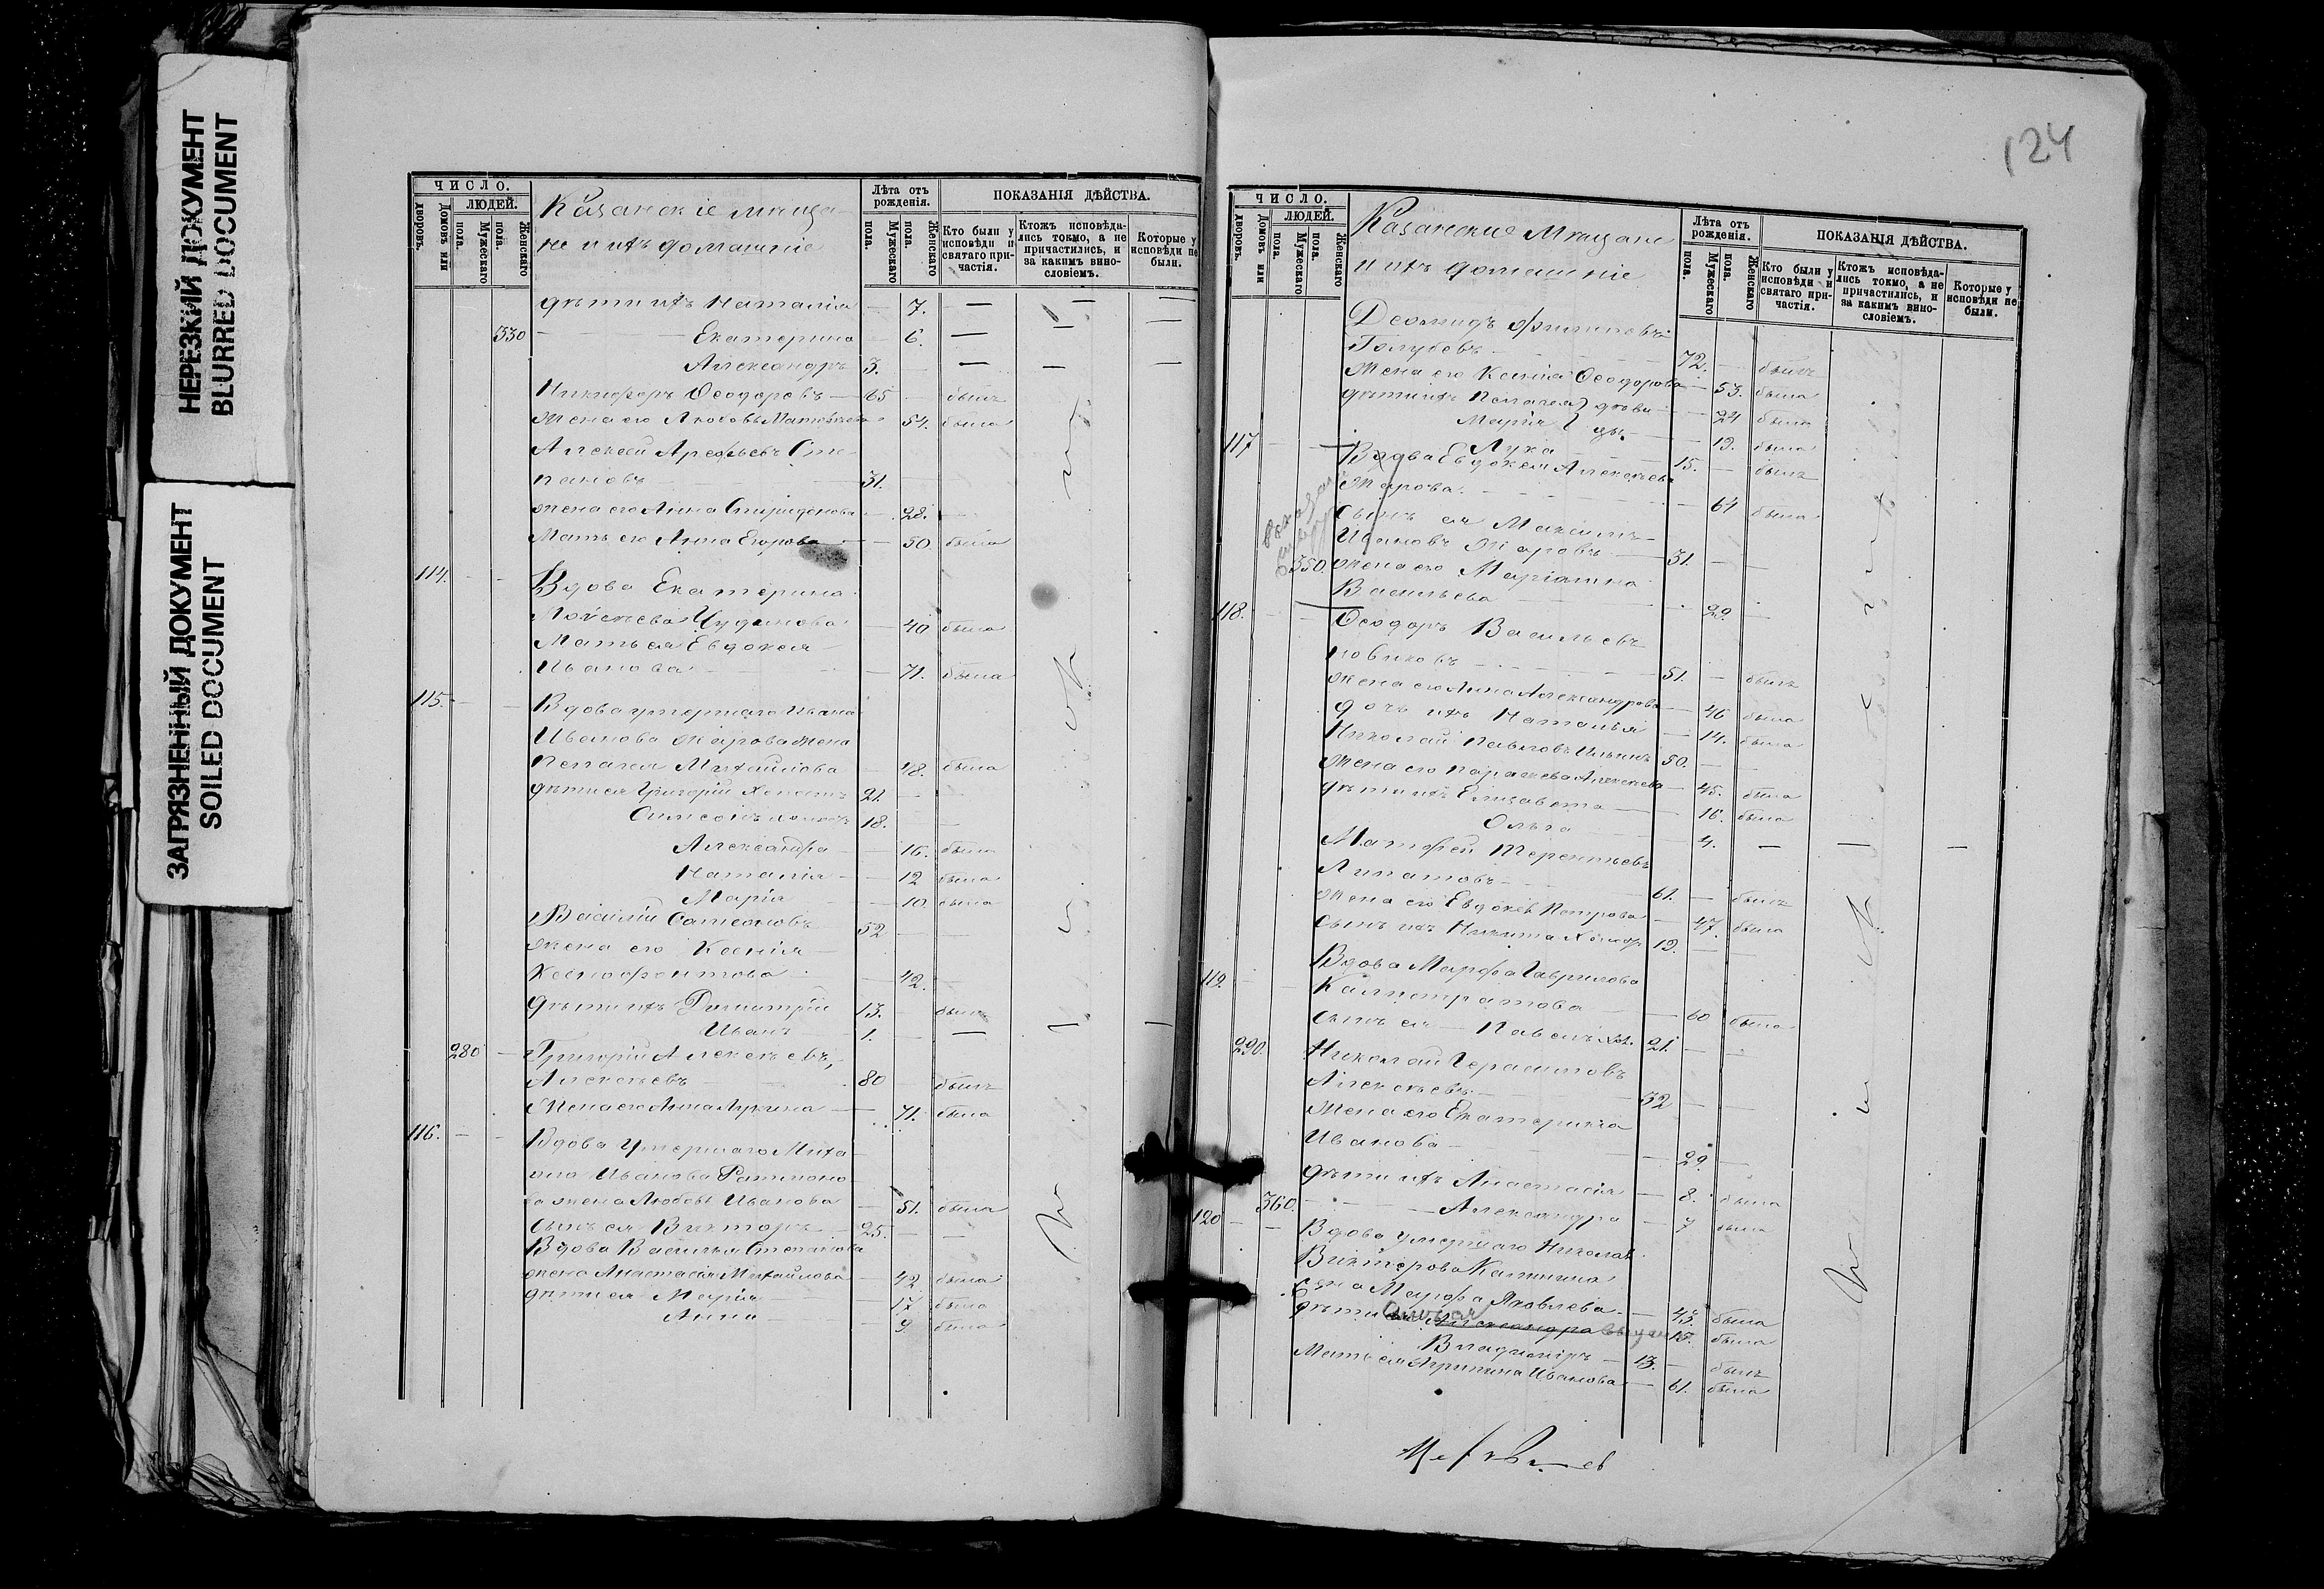 НЕРЕЗКИЙ ДОКУМЕНТ
BLURRED DOCUMENT
ЗАГРЯЗНЕННЫЙ ДОКУМЕНТ
SOILED DOCUMENT
ЧИСЛО.
ЛЮДЕЙ.
Домовъ или дворовъ.
Мужескаго пола.
Женскаго пола.
Казанскіе мѣща-
не и ихъ домашніе
Лѣта отъ рожденія.
Мужескаго пола.
Женскаго пола.
ПОКАЗАНІЯ ДѢЙСТВА.
Кто были у исповѣди и святаго причастія.
Ктожъ исповѣдались токмо, а не причастились, и за какимъ винословіемъ.
Которые у исповѣди не были.
дѣти ихъ Наталія — 7. — — —
330 — Екатерина — 6. — — —
Александръ 3. — — —
Никифоръ Ѳеодоровъ — 65 былъ
Жена его Любовь Матвѣева 54. была
Алексей Арефьевъ Сте-
пановъ 31.
жена его Анна Спиридонова 28.
Мать его Анна Егорова 50 была
114. Вдова Екатерина
Чуданова 40 была
Мать ея Евдокія
Иванова 71. была
115. Вдова умершаго Ивана
Иванова Жарова жена
Пелагея Михайлова 48. была
дѣти ея Григорій Холостъ 21.
Симеонъ холостъ 18.
Александра 16. была
Наталія 12 была
Марія 10 была
Василій Самсоновъ 52
жена его Ксенія
Ксенофонтова 42.
дѣти ихъ Димитрій 13. былъ
Иванъ 1. —
280 Григорій Алексѣевъ
Алексѣевъ 80 былъ
Жена его Анна Лукина 71. была
116. Вдова умершаго Миха-
ила Иванова
ва жена Любовь Иванова 51. была
Сынъ ея Викторъ 25.
Вдова Василія Степанова
жена Анастасія Михайлова 42 была
дѣти ея Марія 17 была
Анна 9 была
124
ЧИСЛО.
ЛЮДЕЙ.
Домовъ или дворовъ.
Мужескаго пола.
Женскаго пола.
Казанскіе Мѣщане
и ихъ домашніе
Лѣта отъ рожденія.
Мужескаго пола.
Женскаго пола.
ПОКАЗАНІЯ ДѢЙСТВА.
Кто были у исповѣди и святаго причастія.
Ктожъ исповѣдались токмо, а не причастились, и за какимъ винословіемъ.
Которые у исповѣди не были.
Деомидъ Филиповъ
Голубевъ 72. былъ
Жена его Ксенія Ѳеодорова 53. была
дѣти ихъ Пелагея 24 была
Марія 19. была
Лука 15. былъ
117 Вдова Евдокія Алексѣева
Жарова. 64 была
Сынъ ея Максимъ
Ивановъ Жаровъ 31.
350. жена его Маріанна
Васильева 29.
118. Ѳеодоръ Васильевъ
Новиковъ 51. былъ
жена его Анна Александрова 46 была
дочь ихъ Наталья 14. была
Николай Павловъ Ильинъ 50.
Жена его Параскева Алексѣева 45. была
дѣти ихъ Елизавета 16. была
Ольга 4. — — —
Матфей Терентьевъ
Липатовъ 61. былъ
жена его Евдокія Петрова 47. была
Сынъ ихъ Никита 19.
119. Вдова Марфа Гаврилова
Калистратова 60 была
сынъ ея Павелъ хол. 21.
290. Николай Герасимовъ
Алексѣевъ 32
Жена его Екатерина
Иванова 29.
дѣти ихъ Анастасія 8. была
360. Александра 7 была
120 Вдова умершаго Николая
Викторова Калинина
Жена Марфа Яковлева 43. была
дѣти ея Александра 15. была
Владиміръ 13. былъ
Мать ея Иванова 61. была